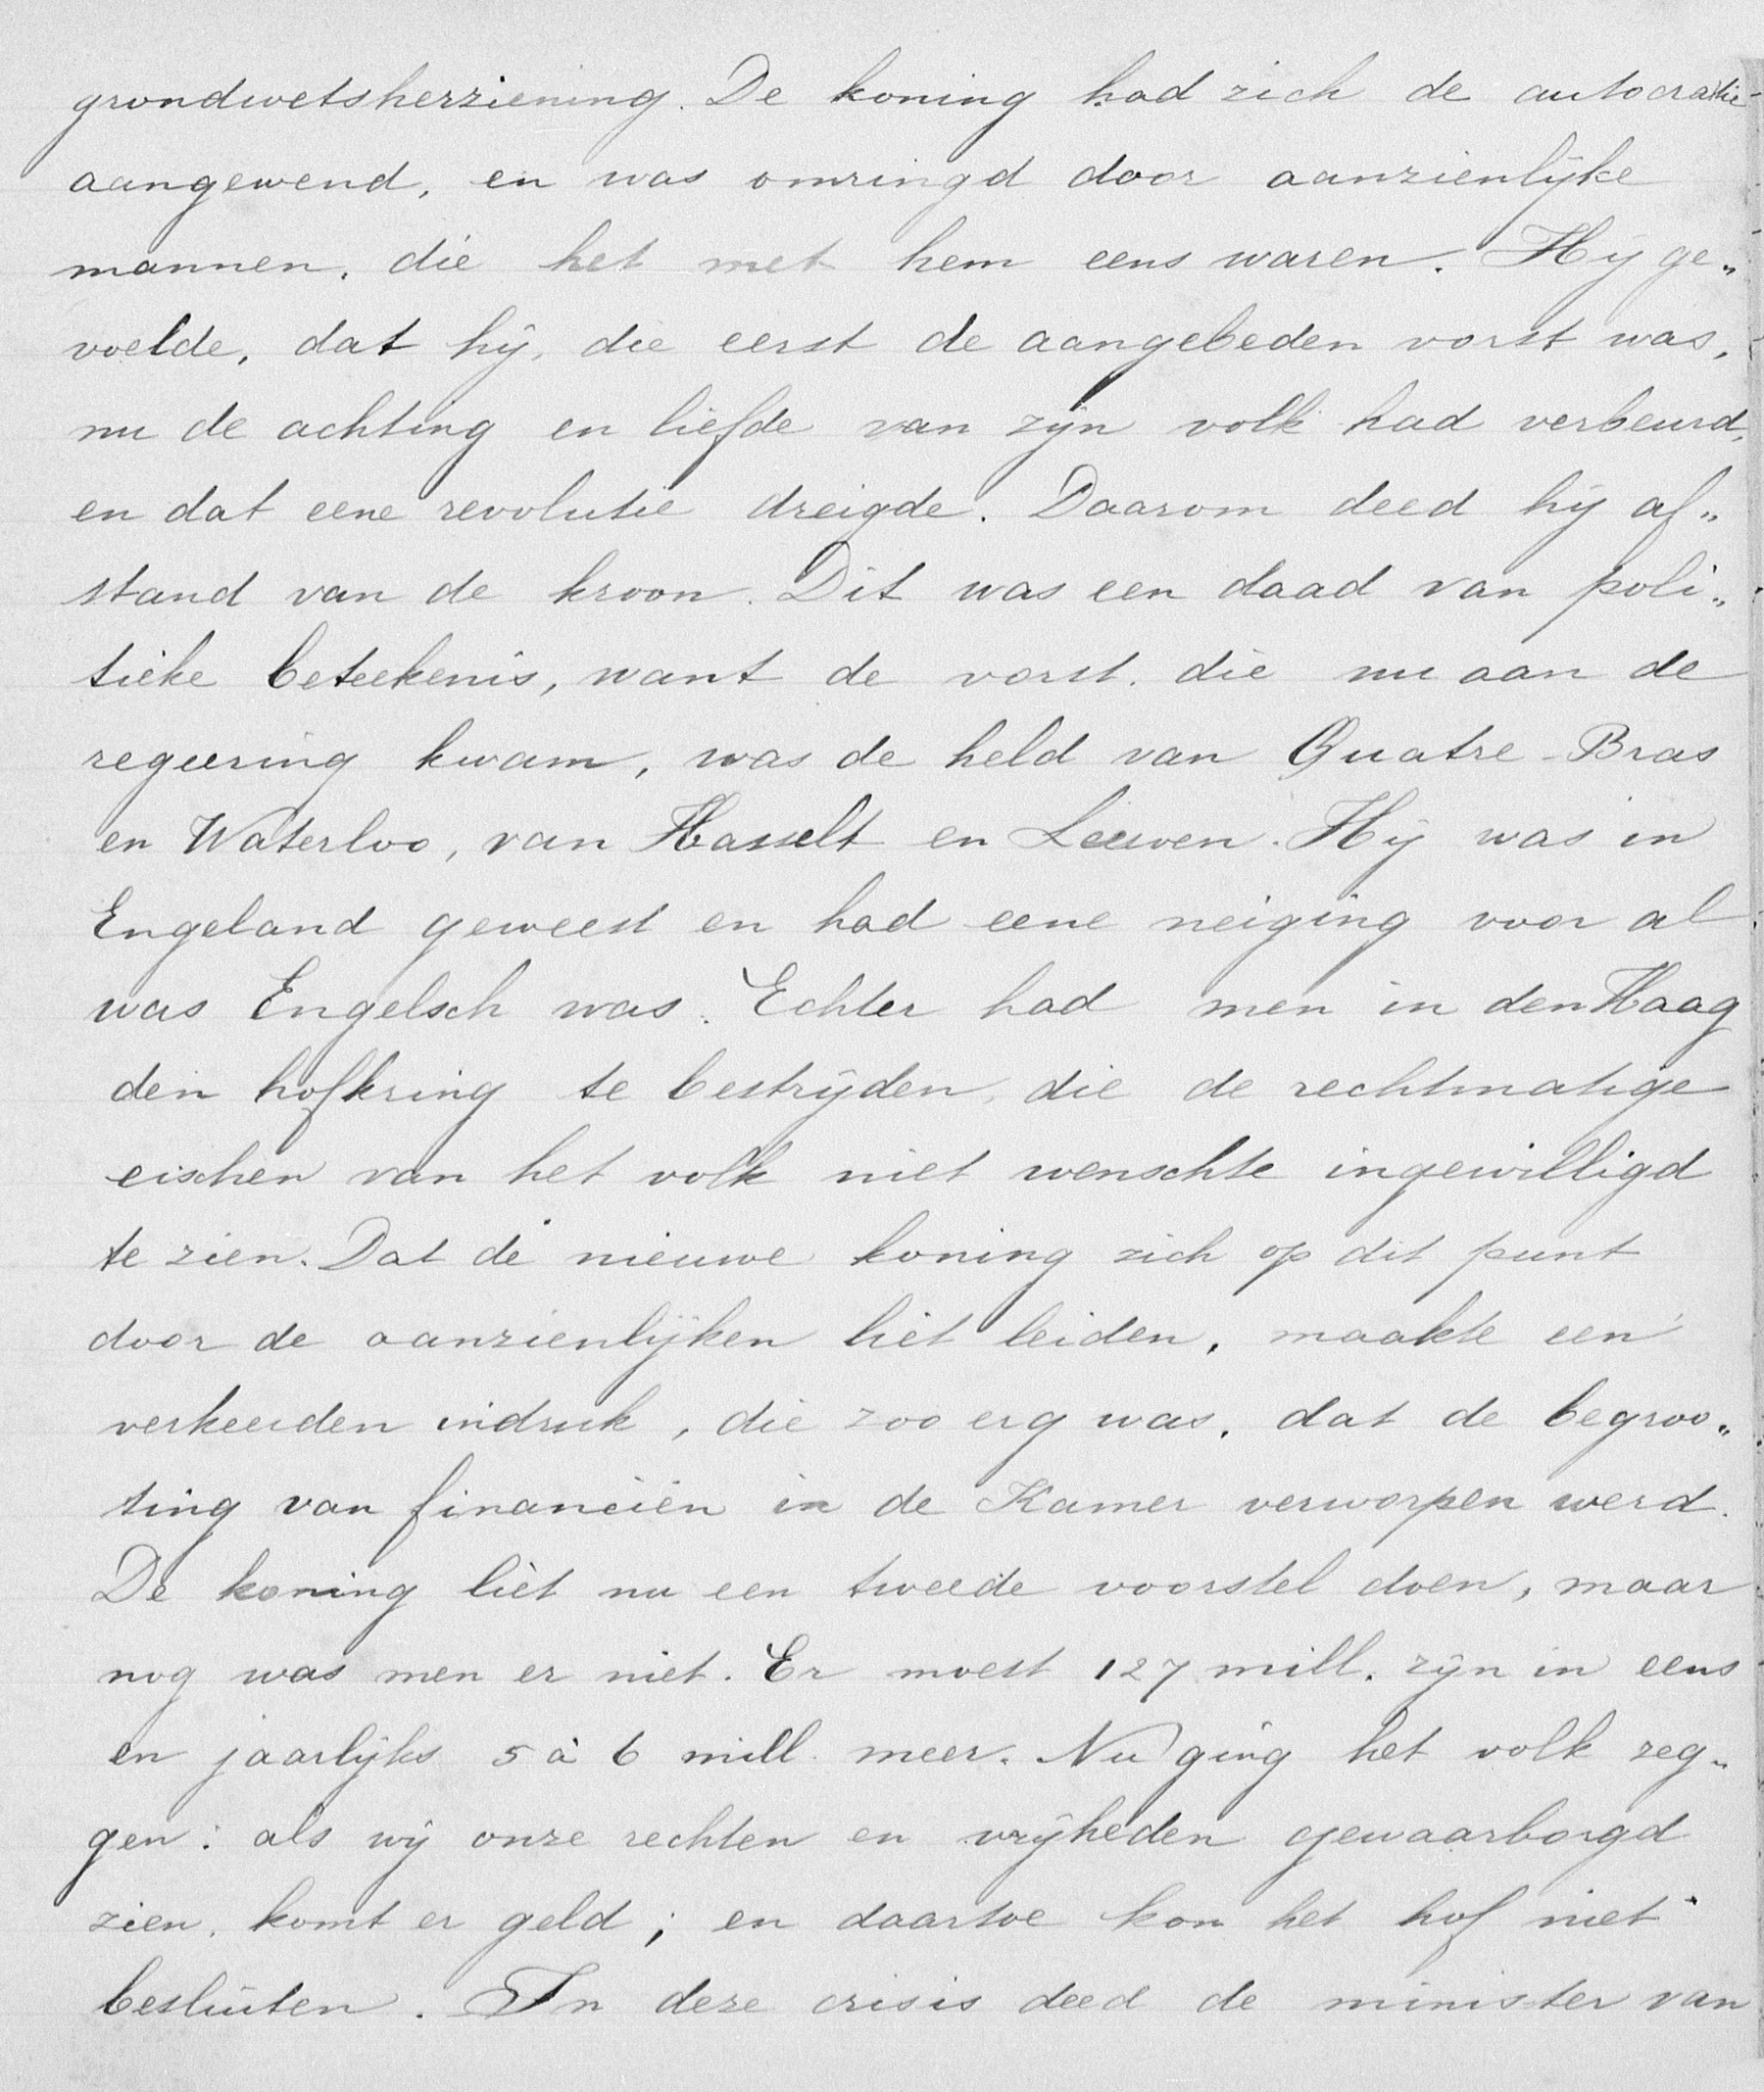 grondwetsherziening. De koning had zich de autocratie
aangewend, en was omringd door aanzienlijke
mannen, die het met hem eens waren. Hij ge„
voelde, dat hij, die eerst de aangebeden vorst was,
nu de achting en liefde van zijn volk had verbeurd,
en dat eene revolutie dreigde. Daarom deed hij af„
stand van de kroon. Dit was een daad van poli„
tieke beteekenis, want de vorst, die nu aan de
regeering kwam, was de held van Quatre-Bras
en Waterloo, van Hasselt en Leuven. Hij was in
Engeland geweest en had eene neiging voor al
was Engelsch was. Echter had men in den Haag
den hofkring te bestrijden, die de rechtmatige
eischen van het volk niet wenschte ingewilligd
te zien. Dat de nieuwe koning zich op dit punt
door de aanzienlijken liet leiden, maakte een
verkeerden indruk, die zoo erg was, dat de begroo„
ting van financiën in de Kamer verworpen werd.
De koning liet nu een tweede voorstel doen, maar
nog was men er niet. Er moest 127 mill. zijn in eens
en jaarlijks 5 à 6 mill. meer. Nu ging het volk zeg„
gen: als wij onze rechten en vrijheden gewaarborgd
zien, komt er geld; en daartoe kon het hof niet
besluiten. In deze crisis deed de minister van